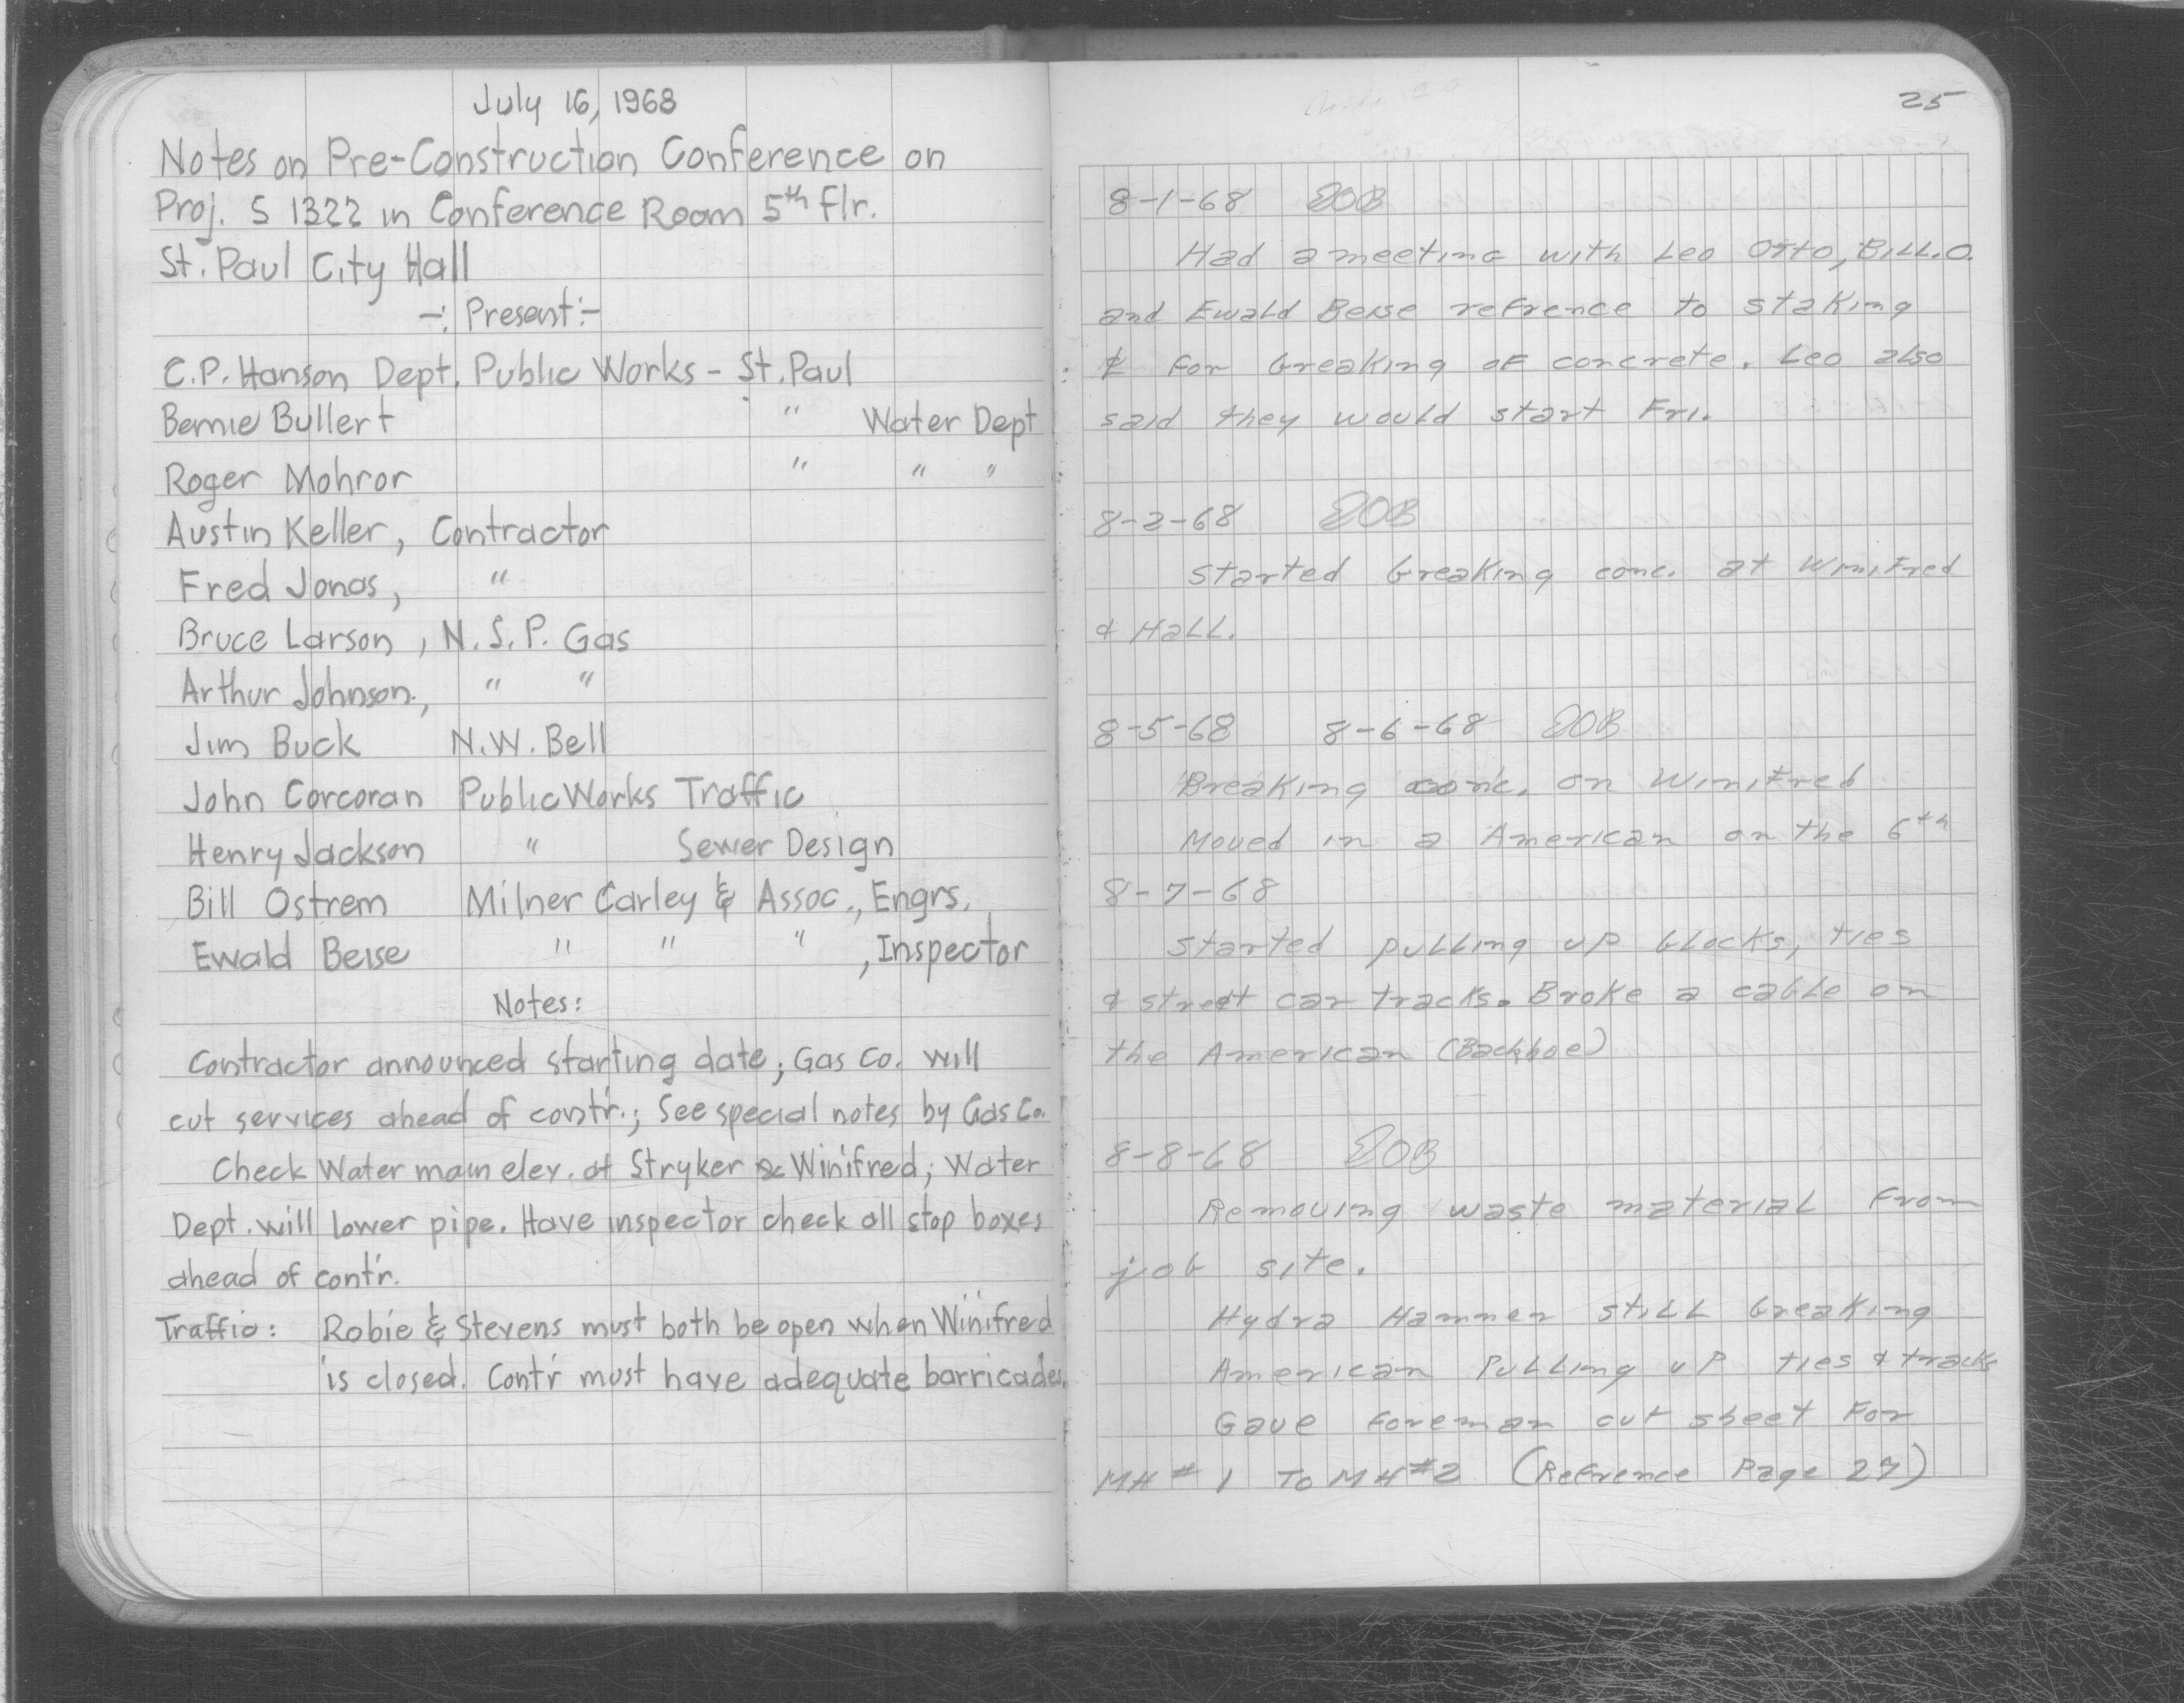 July 16, 1968
Notes on Pre-Construction Conference on
Proj. S 1322 in Conference Room 5th Flr.
St. Paul City Hall
-: Present :-
C.P. Hanson Dept. Public Works - St. Paul
Bernie Bullert " Water Dept
Roger Mohror " " "
Austin Keller, Contractor
Fred Jonas, "
Bruce Larson, N.S.P. Gas
Arthur Johnson, " "
Jim Buck N.W. Bell
John Corcoran Public Works Traffic
Henry Jackson " Sewer Design
Bill Ostrem Milner Carley & Assoc., Engrs.
Ewald Beise " " " , Inspector
Notes:
Contractor announced starting date; Gas Co. will
cut services ahead of contr.; See special notes by Gas Co.
Check Water main elev. at Stryker & Winifred; Water
Dept. will lower pipe. Have inspector check all stop boxes
ahead of cont'r.
Traffic: Robie & Stevens must both be open when Winifred
is closed. Cont'r must have adequate barricades.
25
8-1-68 EOB
Had a meeting with Leo Otto, Bill. O.
and Ewald Beise refrence to staking
℄ for breaking of concrete. Leo also
said they would start Fri.
8-2-68 EOB
Started breaking conc. at Winifred
& Hall.
8-5-68 8-6-68 EOB
Breaking conc. on Winifred
Moved in a American on the 6th
8-7-68
Started pulling up blocks, ties
& street car tracks. Broke a cable on
the American (Backhoe)
8-8-68 EOB
Removing waste material from
job site.
Hydra Hammer still breaking
American pulling up ties & tracks
Gave foreman cut sheet for
MH # 1 To MH #2 (Refrence Page 27)